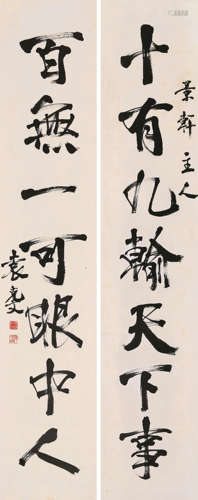 十有九輸天下事
景軒主人
百無一可眼中人
袁克文